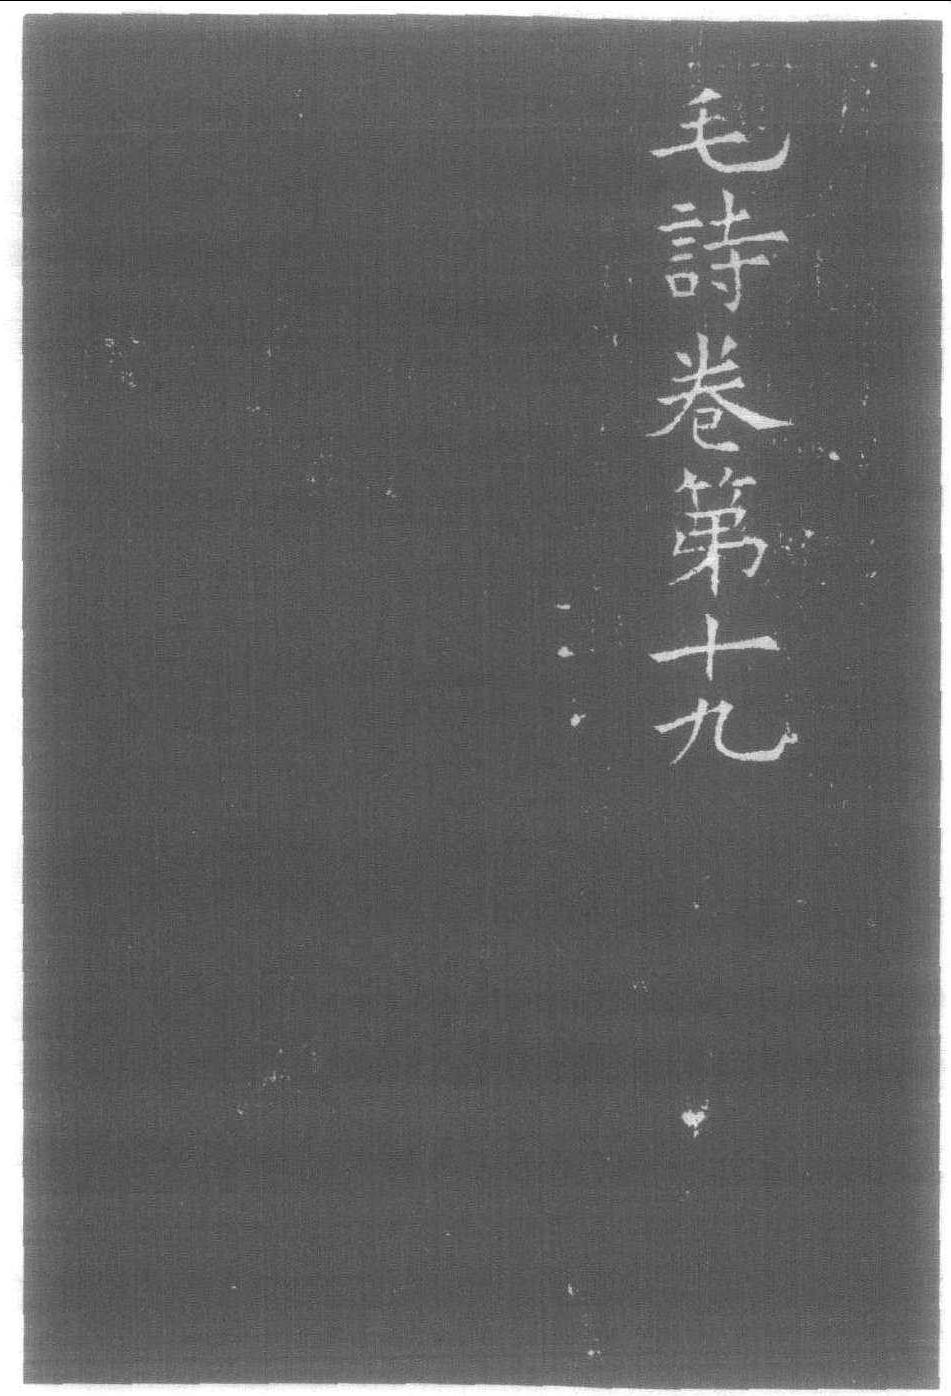 毛詩卷第十九